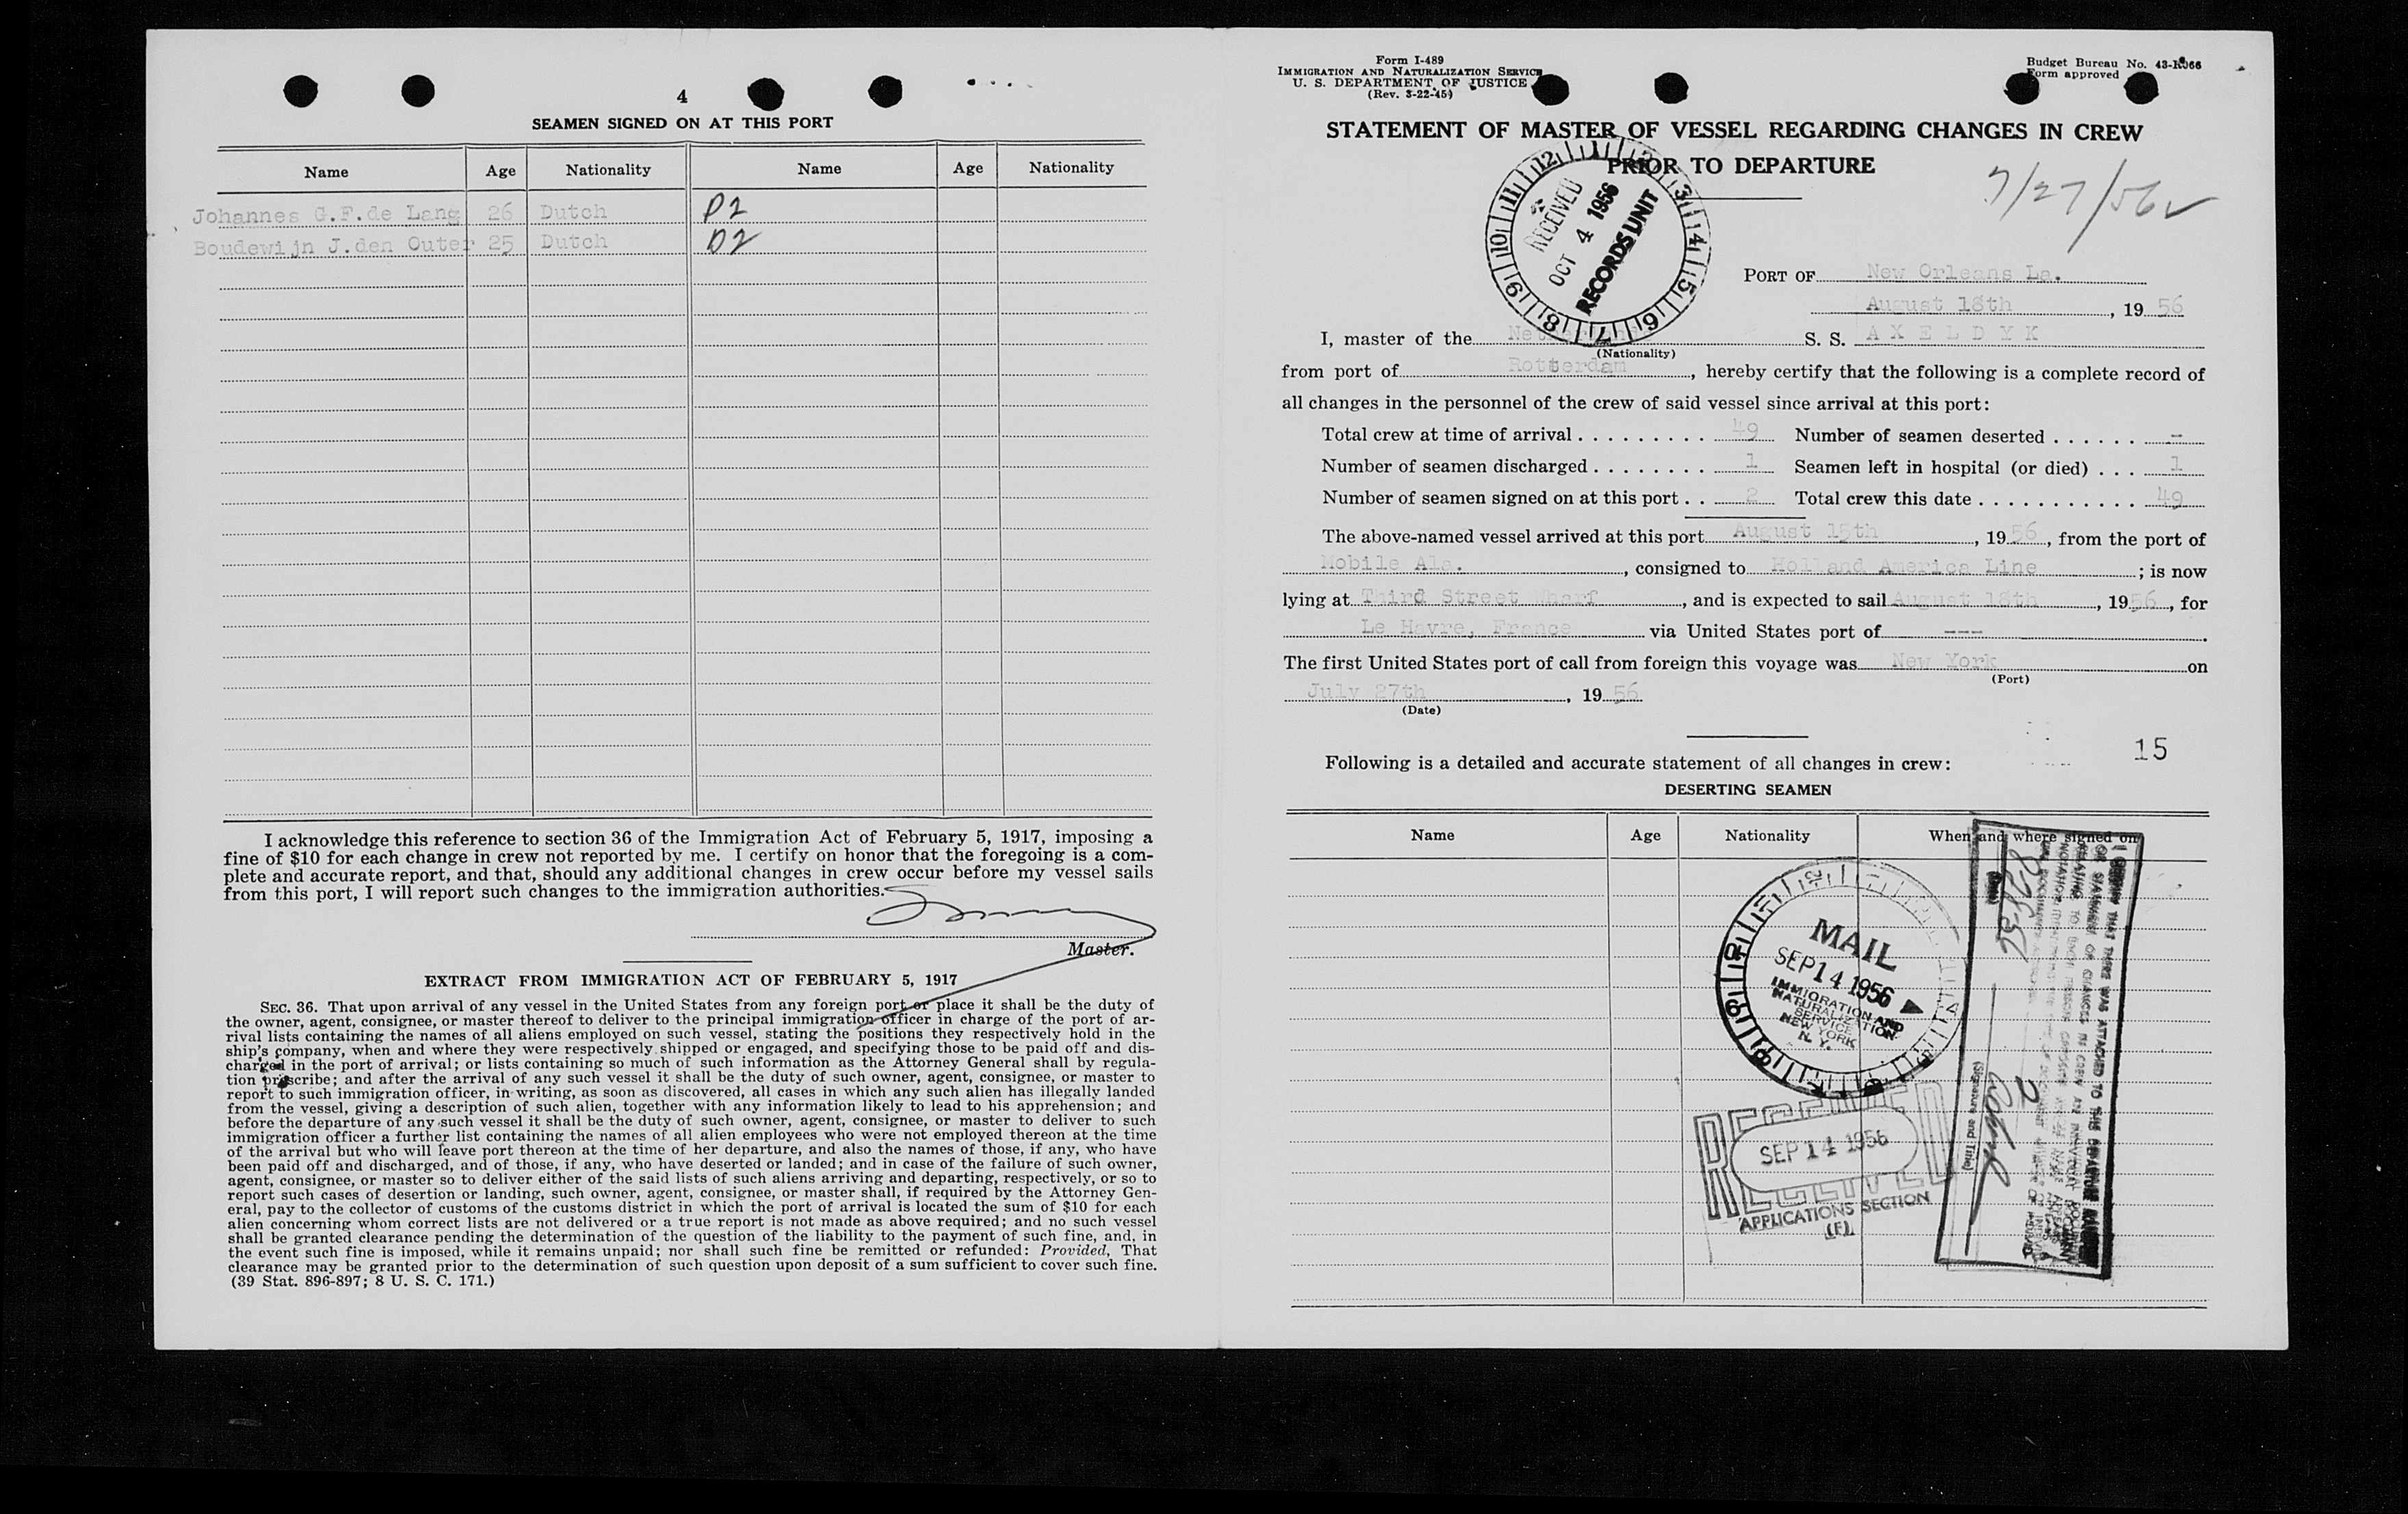 4
SEAMEN SIGNED ON AT THIS PORT
Name Age Nationality Name Age Nationality
Johannes G.F.de Lang 26 Dutch D2
Boudewijn J.den Outer 25 Dutch D2
I acknowledge this reference to section 36 of the Immigration Act of February 5, 1917, imposing a
fine of $10 for each change in crew not reported by me. I certify on honor that the foregoing is a com-
plete and accurate report, and that, should any additional changes in crew occur before my vessel sails
from this port, I will report such changes to the immigration authorities.
Master.
EXTRACT FROM IMMIGRATION ACT OF FEBRUARY 5, 1917
SEC. 36. That upon arrival of any vessel in the United States from any foreign port or place it shall be the duty of
the owner, agent, consignee, or master thereof to deliver to the principal immigration officer in charge of the port of ar-
rival lists containing the names of all aliens employed on such vessel, stating the positions they respectively hold in the
ship's company, when and where they were respectively shipped or engaged, and specifying those to be paid off and dis-
charged in the port of arrival; or lists containing so much of such information as the Attorney General shall by regula-
tion prescribe; and after the arrival of any such vessel it shall be the duty of such owner, agent, consignee, or master to
report to such immigration officer, in writing, as soon as discovered, all cases in which any such alien has illegally landed
from the vessel, giving a description of such alien, together with any information likely to lead to his apprehension; and
before the departure of any such vessel it shall be the duty of such owner, agent, consignee, or master to deliver to such
immigration officer a further list containing the names of all alien employees who were not employed thereon at the time
of the arrival but who will leave port thereon at the time of her departure, and also the names of those, if any, who have
been paid off and discharged, and of those, if any, who have deserted or landed; and in case of the failure of such owner,
agent, consignee, or master so to deliver either of the said lists of such aliens arriving and departing, respectively, or so to
report such cases of desertion or landing, such owner, agent, consignee, or master shall, if required by the Attorney Gen-
eral, pay to the collector of customs of the customs district in which the port of arrival is located the sum of $10 for each
alien concerning whom correct lists are not delivered or a true report is not made as above required; and no such vessel
shall be granted clearance pending the determination of the question of the liability to the payment of such fine, and, in
the event such fine is imposed, while it remains unpaid; nor shall such fine be remitted or refunded: Provided, That
clearance may be granted prior to the determination of such question upon deposit of a sum sufficient to cover such fine.
(39 Stat. 896-897; 8 U. S. C. 171.)
Form I-489
IMMIGRATION AND NATURALIZATION SERVICE
U. S. DEPARTMENT OF JUSTICE
(Rev. 3-22-45)
Budget Bureau No. 43-R066
Form approved
STATEMENT OF MASTER OF VESSEL REGARDING CHANGES IN CREW
PRIOR TO DEPARTURE
7/27/56
RECEIVED
OCT 4 1956
RECORDS UNIT
PORT OF New Orleans La.
August 18th, 19 56
I, master of the S. S. AXELDYK
(Nationality)
from port of Rotterdam, hereby certify that the following is a complete record of
all changes in the personnel of the crew of said vessel since arrival at this port:
Total crew at time of arrival . . . . . . . . . . 49 Number of seamen deserted . . . . . . --
Number of seamen discharged . . . . . . . . 1 Seamen left in hospital (or died) . . . 1
Number of seamen signed on at this port . . 2 Total crew this date . . . . . . . . . . . . 49
The above-named vessel arrived at this port August 15th, 19 56, from the port of
Mobile Ala., consigned to Holland America Line; is now
lying at Third Street Wharf, and is expected to sail August 18th, 19 56, for
Le Havre, France via United States port of ---.
The first United States port of call from foreign this voyage was New York on
(Port)
July 27th, 19 56
(Date)
15
Following is a detailed and accurate statement of all changes in crew:
DESERTING SEAMEN
Name Age Nationality When and where signed on
MAIL
SEP 14 1956
IMMIGRATION AND
NATURALIZATION
SERVICE
NEW YORK
N. Y.
RECEIVED
SEP 14 1956
APPLICATIONS SECTION
(F)
(Signature and Title)